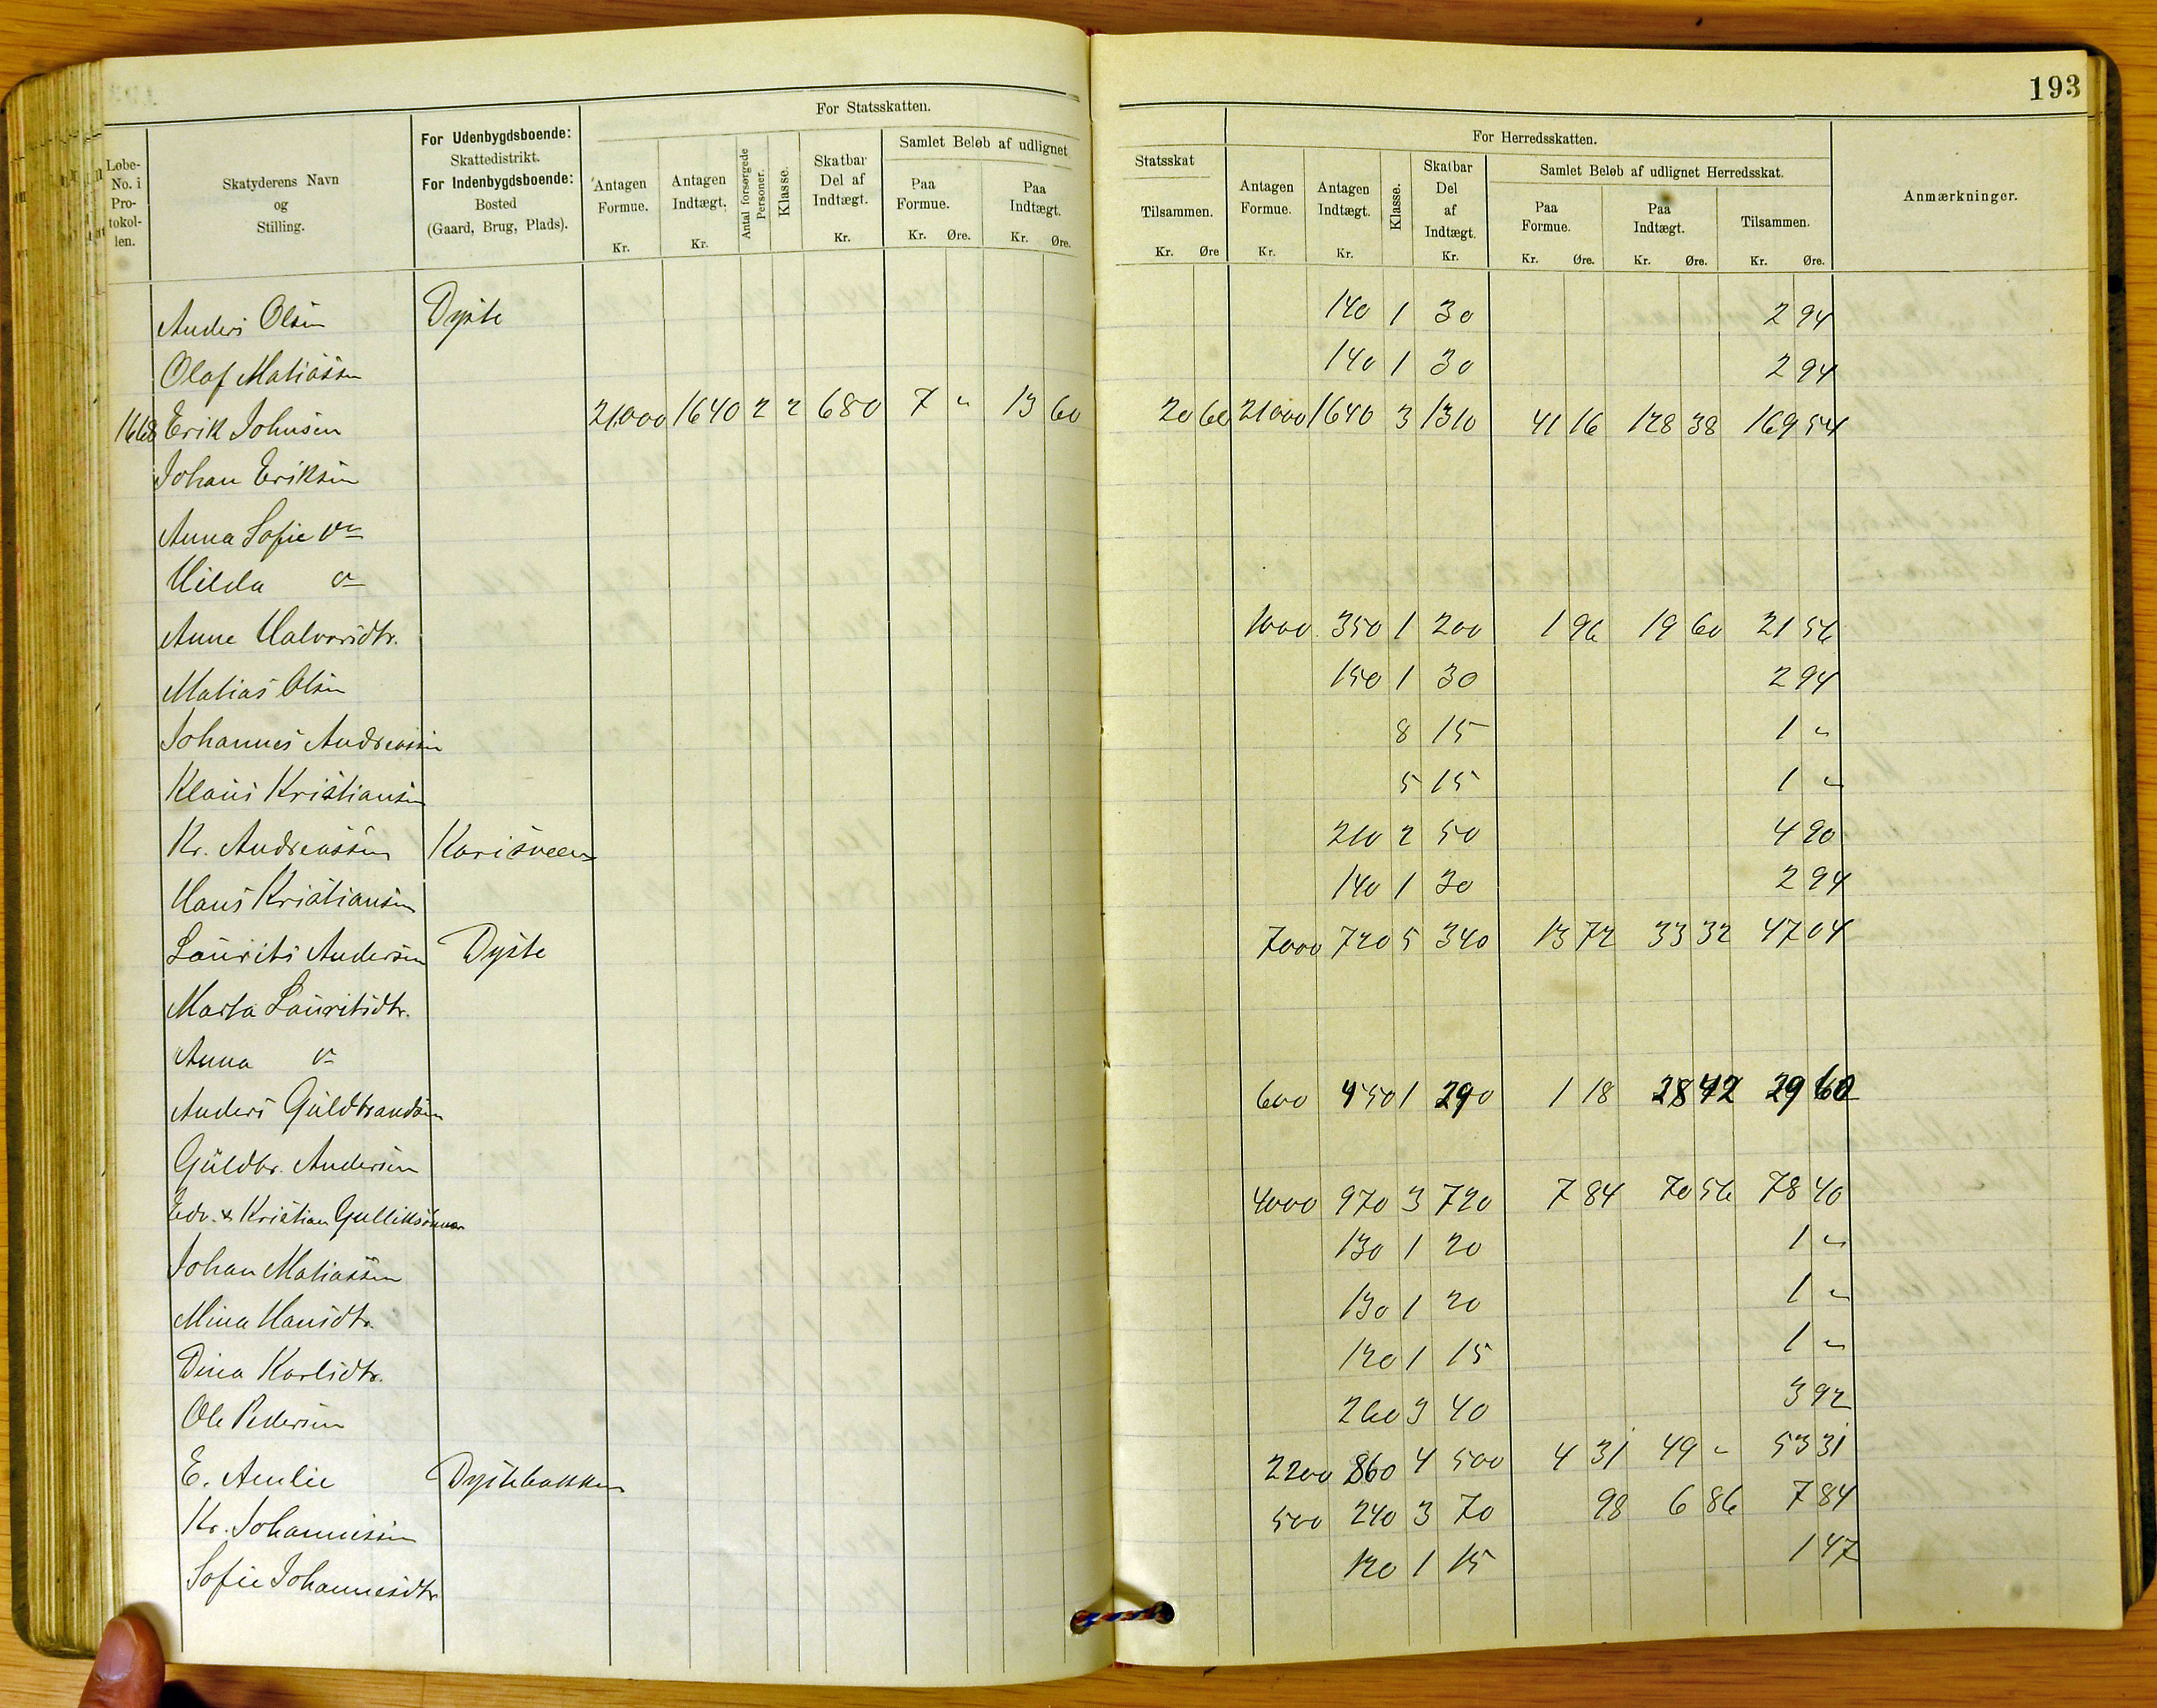 193
For Statsskatten.
For Herredsskatten.
Løbe-No. i Pro-tokol-len.
Skatyderens Navn og Stilling.
For Udenbygdsboende: Skattedistrikt. For Indenbygdsboende: Bosted (Gaard, Brug, Plads).
Antagen Formue. Kr.
Antagen Indtægt. Kr.
Antal forsørgede Personer.
Klasse.
Skatbar Del af Indtægt. Kr.
Samlet Beløb af udlignet
Paa Formue. Kr. Øre.
Paa Indtægt. Kr. Øre.
Statsskat
Tilsammen. Kr. Øre
Antagen Formue. Kr.
Antagen Indtægt. Kr.
Klasse.
Skatbar Del af Indtægt. Kr.
Samlet Beløb af udlignet Herredsskat.
Paa Formue. Kr. Øre.
Paa Indtægt. Kr. Øre.
Tilsammen. Kr. Øre.
Anmærkninger.
Anders Olsen Dyste 140 1 30 2 94
Olaf Matiassen 140 1 30 2 94
1668 Erik Johnsen 21000 1640 2 2 680 7 " 13 60 20 60 21000 1640 3 1310 41 16 128 38 169 54
Johan Eriksen
Anna Sofie
Hilda
Anne Halvorsdtr. 1000 350 1 200 1 96 19 60 21 56
Matias Olsen 150 1 30 2 94
Johannes Andreassen 8 15 1 "
Klaus Kristiansen 5 15 1 "
Kr. Andreassen Karisveen 210 2 50 4 90
Hans Kristiansen 140 1 30 2 94
Laurits Andersen Dyste 7000 720 5 340 13 72 33 32 47 04
Marta Lauritsdtr.
Anna
Anders Guldbrandsen 600 450 1 290 1 18 28 42 29 60
Guldbr. Andersen
Edv. & Kristian Gulliksønner 4000 970 3 720 7 84 70 56 78 40
Johan Matiassen 130 1 20 1 "
Mina Hansdtr. 130 1 20 1 "
Dina Karlsdtr. 120 1 15 1 "
Ole Pedersen 260 3 40 3 92
E. Amlie Dystebakken 2200 860 4 500 4 31 49 " 53 31
Kr. Johannessen 500 240 3 70 98 6 86 7 84
Sofie Johannesdtr 120 1 15 1 47